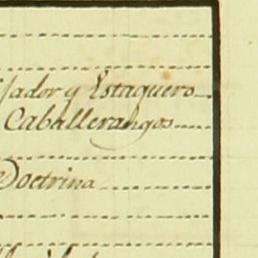 jador y Estaquero
Caballerangos
Doctrina